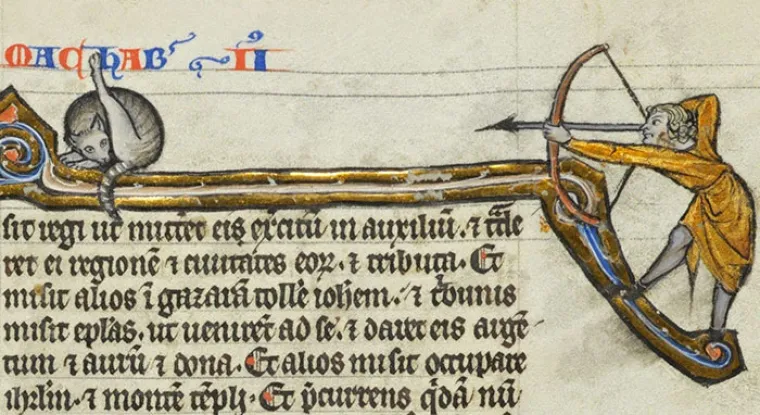 Machab' II
sit regi ut mittēt eis exc̄itū in auxiliū. ⁊ tᵃde
ret ei regionē ⁊ ciuitates eoꝝ. ⁊ tributa. Et
misit alios ī gazarā tollē̄ iohem. ⁊ tͥbunis
misit ep̄las. ut uenirēt ad se. ⁊ daret eis argē
tum ⁊ aurū ⁊ dona. Et alios misit occupare
ihrlm̄. ⁊ montē tēpli. Et p̄currens qͥdā nū